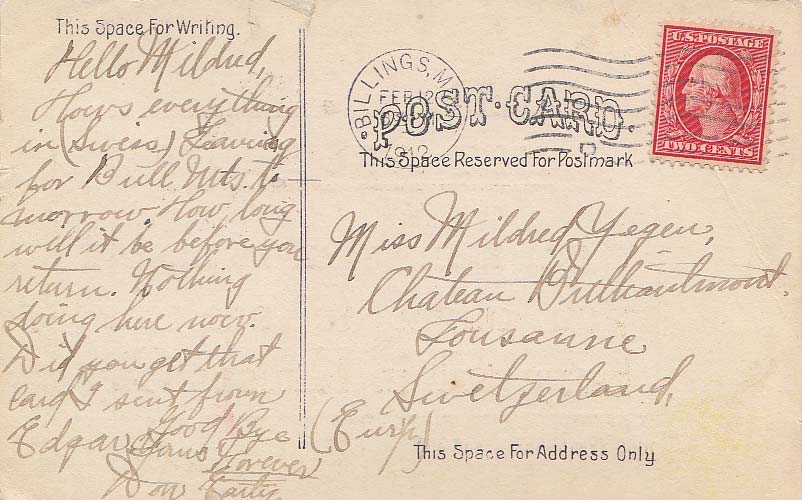 This Space For Writing.
Hello Mildred,
Hows everything
in (Swiss) Leaving
for Bull Mts. to-
morrow. How long
will it be before you
return. Nothing
doing here now.
Did you get that
card I sent from
Edgar. Good Bye
Yours Forever
Don
BILLINGS, M
FEB 12
1912
POST CARD.
This Space Reserved For Postmark
U.S. POSTAGE
TWO CENTS
Miss Mildred Yegen,
Chateau Brilliantmont.
Lousanne
Swetzerland,
(Eurp)
This Space For Address Only